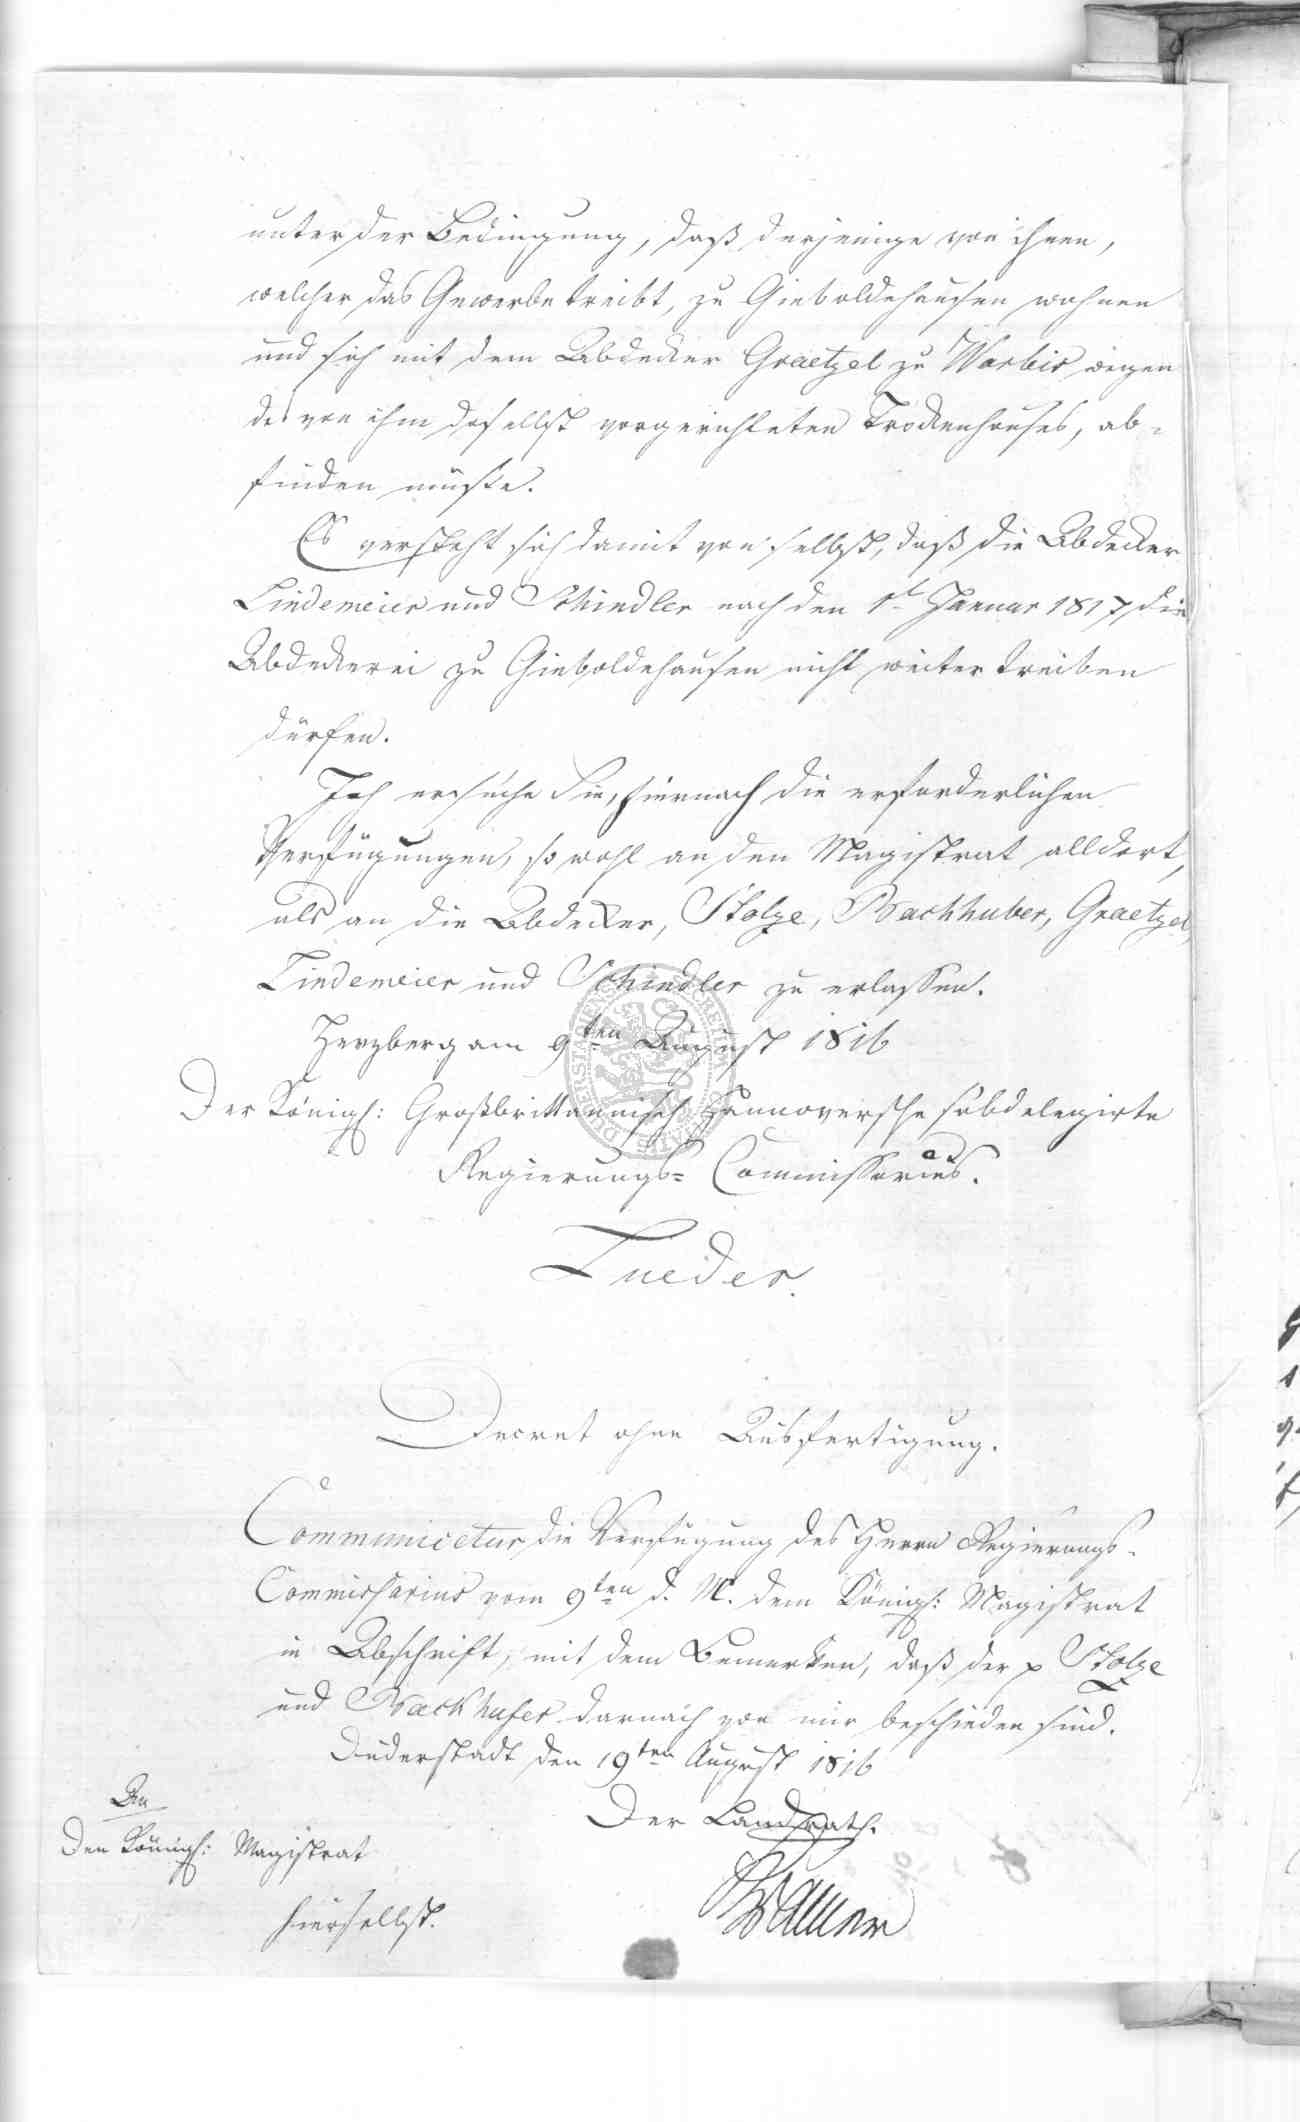 unter der Bedingung, daß derjenige von ihnen,
welcher das Gewerbe treibt, zu Gieboldehausen wohnen
und sich mit dem Abdecker Graetzel zu Worbis wegen
des von ihm daselbst vorgerichteten Trockenhauses, ab-
finden müße.
Es versteht sich damit von selbst, daß die Abdecker
Lindemeier und Schindler nach den 1t Januar 1817 die
Abdeckerei zu Gieboldehausen nicht weiter treiben
dürfen.
Ich ersuche Sie, hiernach die erforderlichen
Verfügungen, so wohl an den Magistrat alldort,
als an die Abdecker, Stolze, Backhuber, Graetzel,
Lindemeier und Schindler zu erlassen.
Herzberg am 9ten August 1816
Der Königl: Großbrittannisch Hannoversche subdelegirte
Regierungs- Commissarius.
Lueder.
Decret ohne Ausfertigung.
Communicetur die Verfügung des Herrn Regierungs-
Commissarius vom 9ten d. M. dem Königl: Magistrat
in Abschrift, mit dem Bemerken, daß der p Stolze
und Backhufer darnach von mir beschieden sind.
Duderstadt den 19ten August 1816
Der Landrath.
An
den Königl: Magistrat
hierselbst.